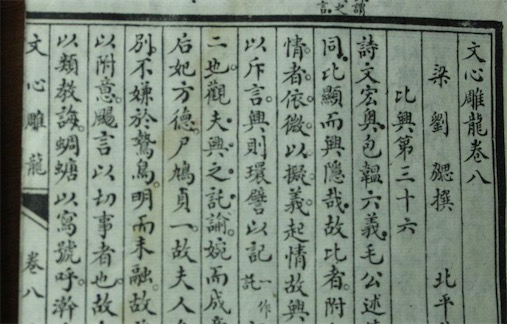 文心雕龍卷八
梁劉勰撰 北平
比興第三十六
詩文宏奧。包韞六義。毛公述
同。比顯而興隱哉。故比者。附
情者。依微以擬義。起情故興
以斥言。興則環譬以記一作託
二也。觀夫興之託諭。婉而成
后妃方德。尸鳩貞一。故夫人
別。不嫌於鷙鳥。明而未融。故
以附意。颺言以切事者也。故
以類教誨。蜩螗以寫號呼。澣
文心雕龍 卷八